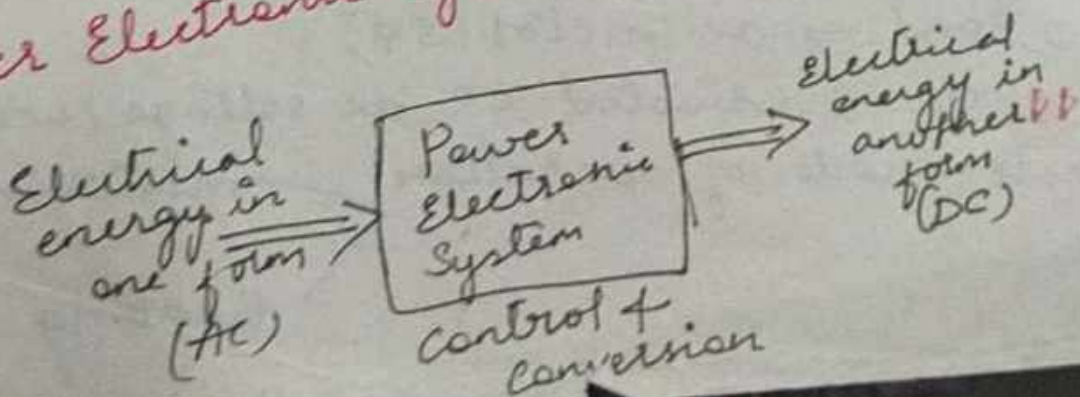 Electronic
Electrical
energy in
one form
(AC)
Power
Electronic
System
Control &
Conversion
Electrical
energy in
another
form
(DC)